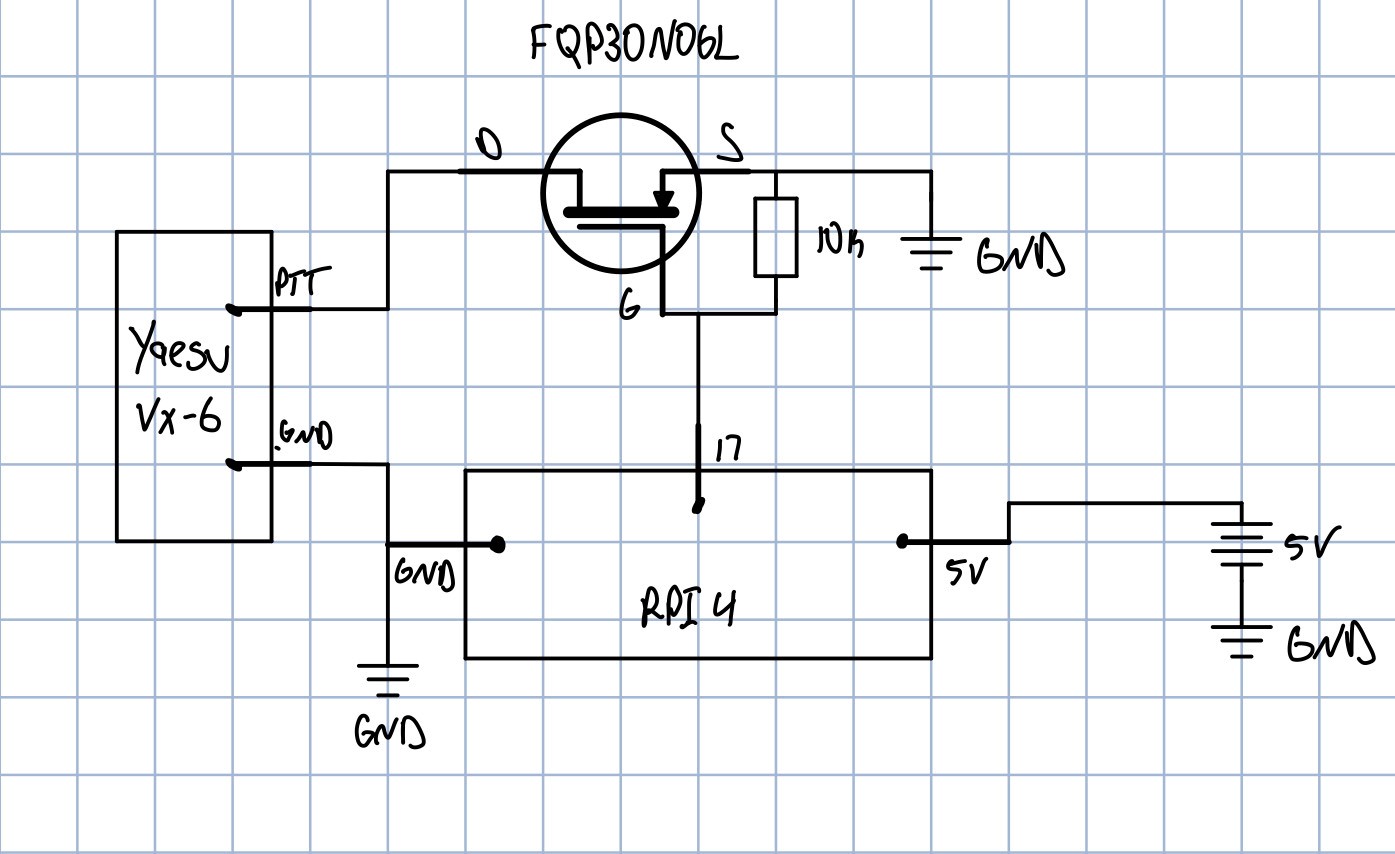 FQP30N06L
D
S
10k
GND
PTT
G
Yaesu
Vx-6
GND
17
GND
5V
5V
RPI 4
GND
GND